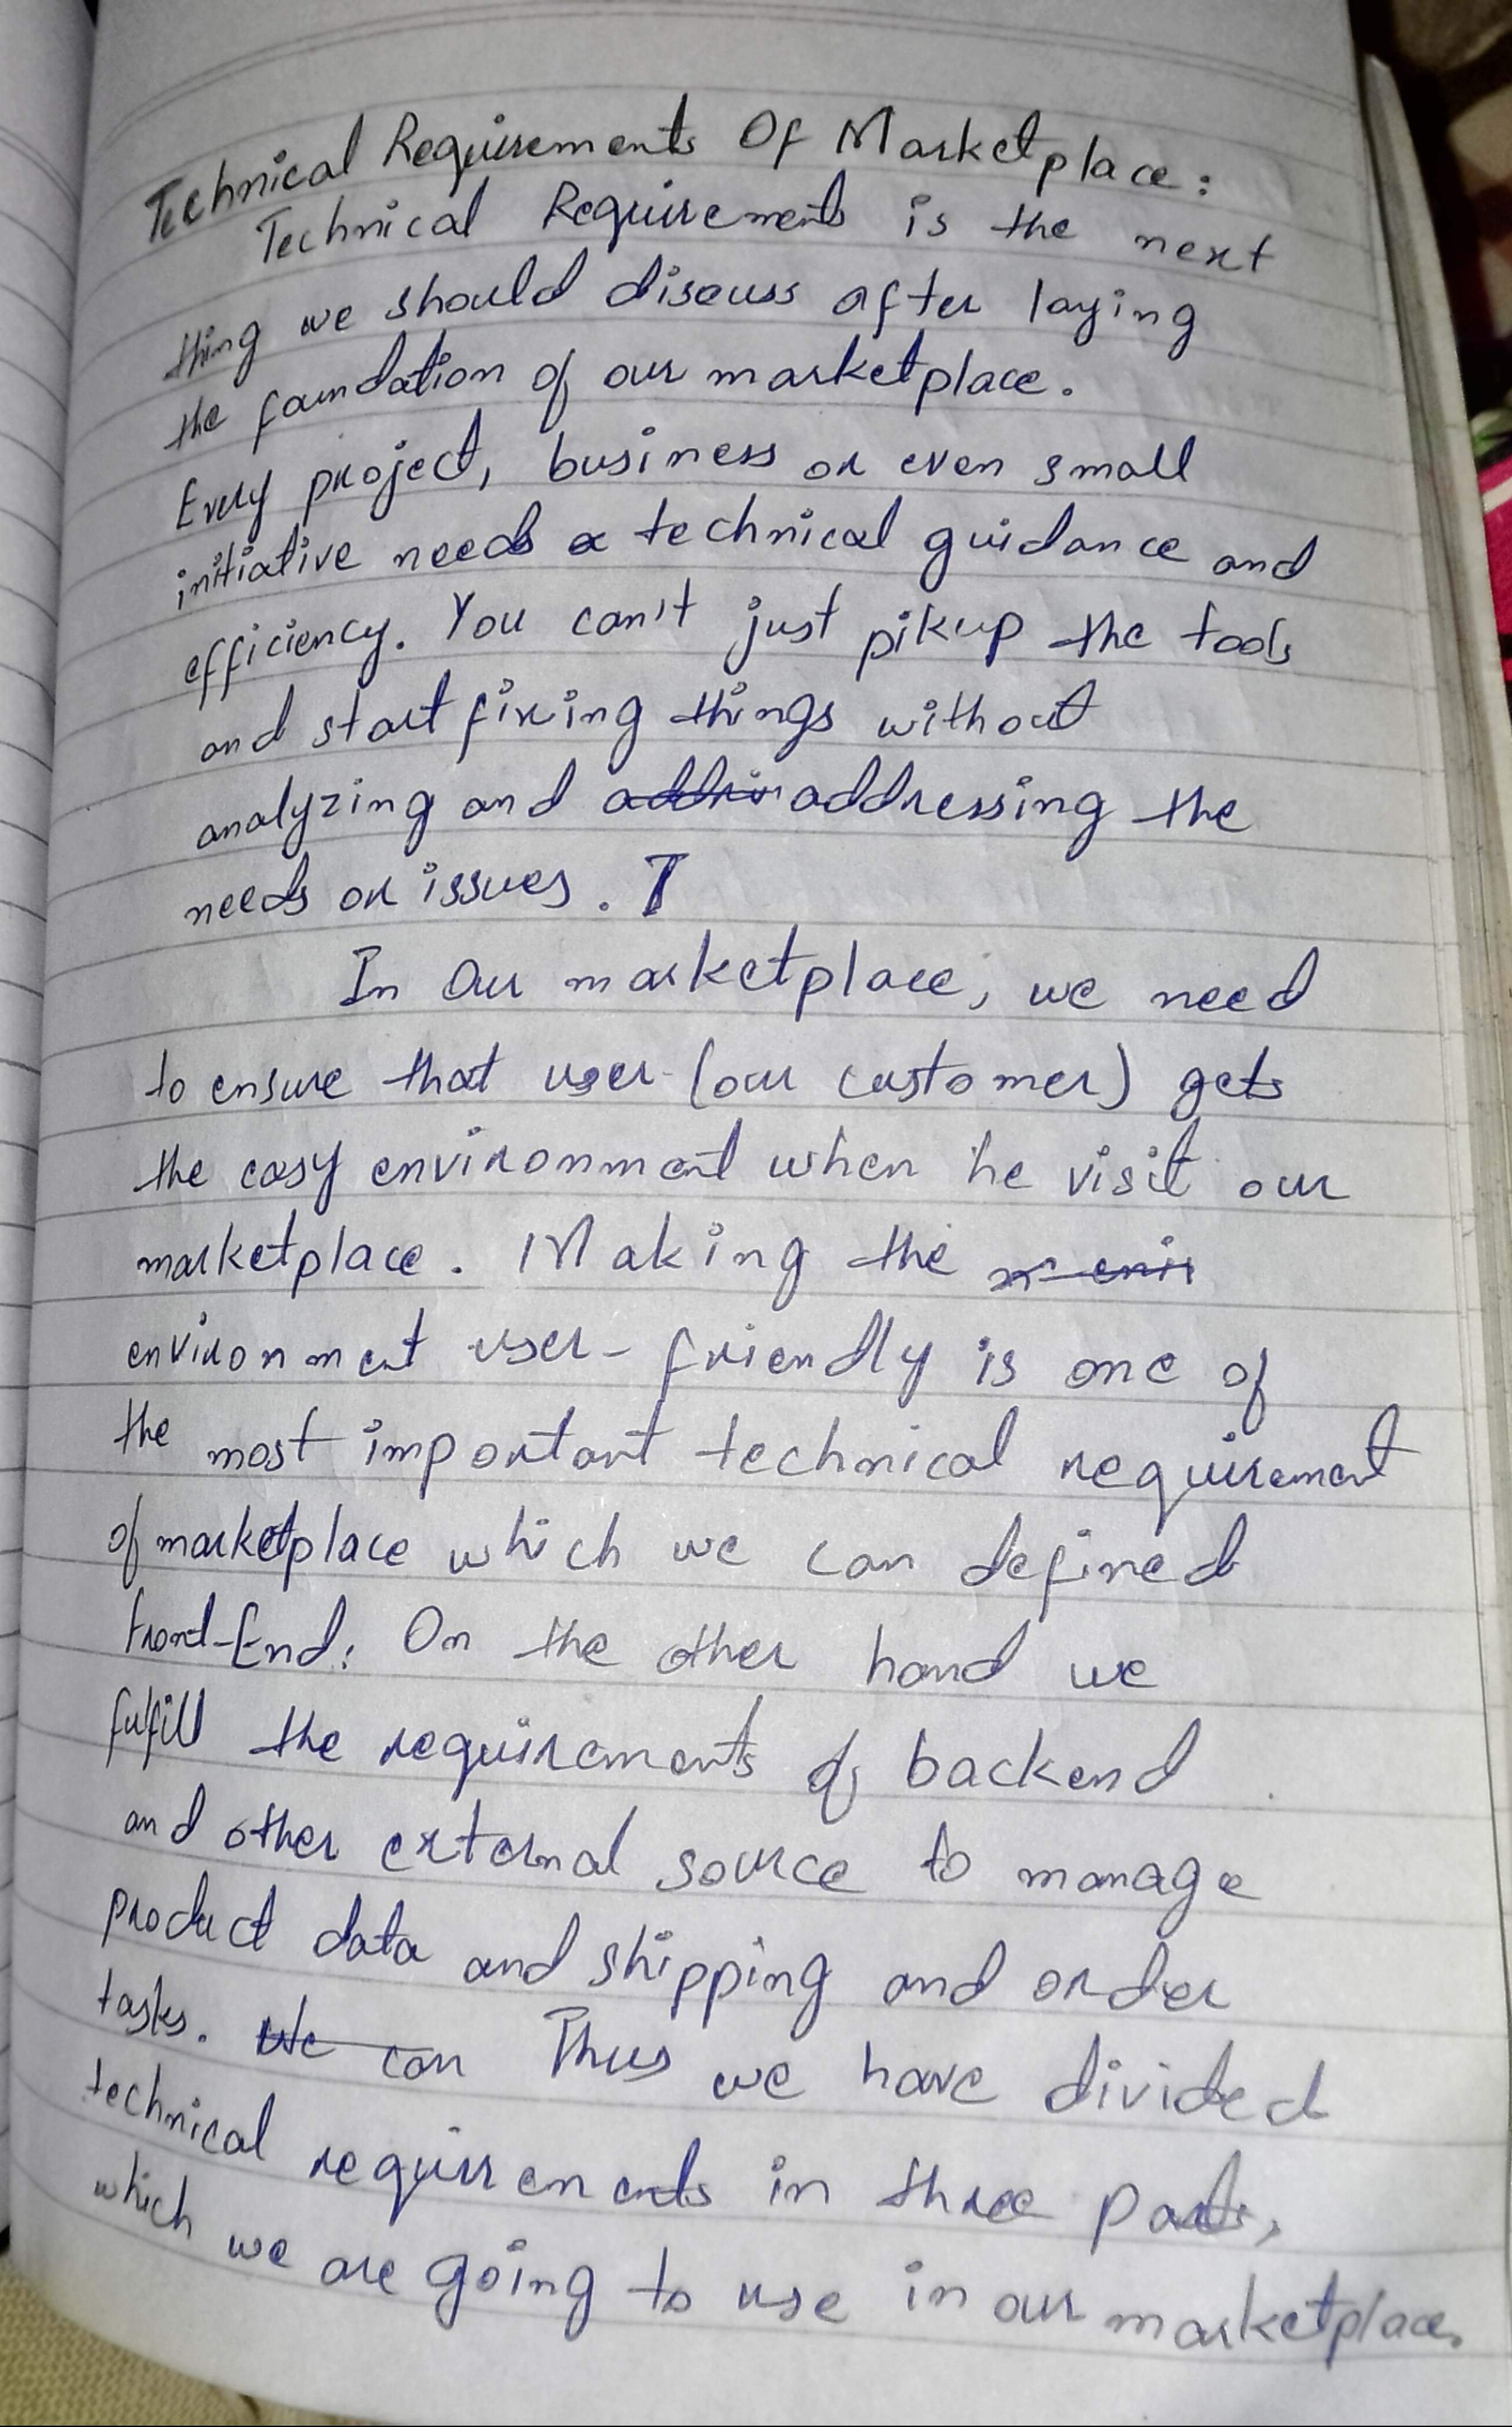 Technical Requirements Of Marketplace:
Technical Requirements is the next
thing we should discuss after laying
the foundation of our marketplace.
Every project, business or even small
initiative needs a technical guidance and
efficiency. You can't just pikup the tools
and start fixing things without
analyzing and addressing the
needs or issues. T
In Our marketplace, we need
to ensure that user (our customer) gets
the easy environment when he visit our
marketplace. Making the
environment user-friendly is one of
the most important technical requirement
of marketplace which we can defined
Front-End. On the other hand we
fulfill the requirements of backend
and other external source to manage
product data and shipping and order
tasks. We can Thus we have divided
technical requirements in three parts,
which we are going to use in our marketplace.